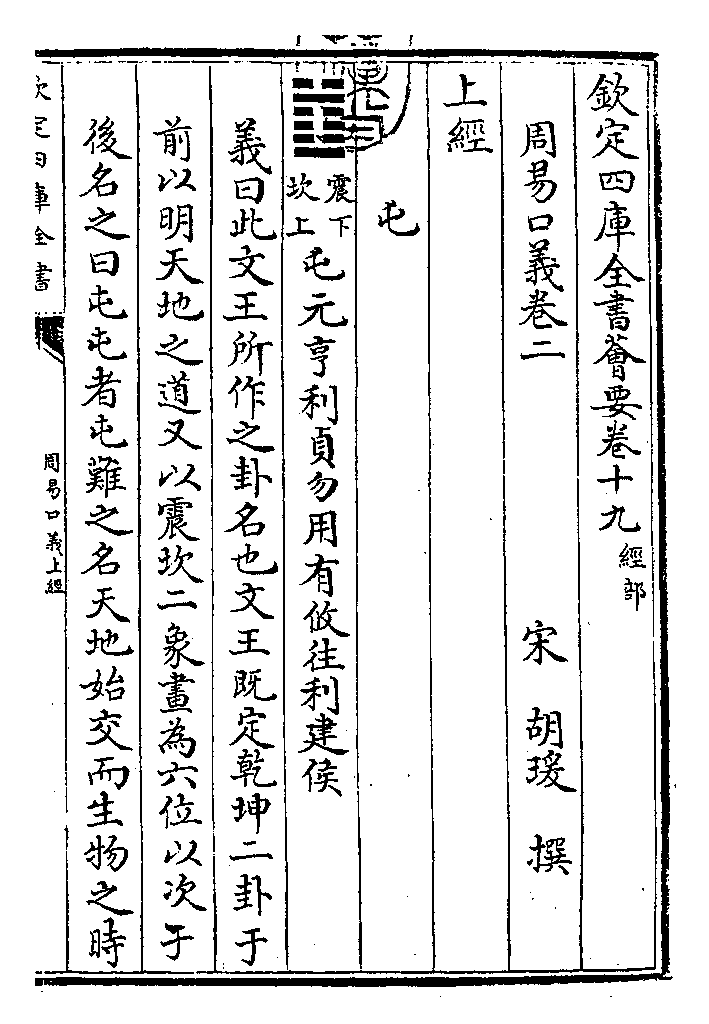 欽定四庫全書薈要卷十九 經部
周易口義卷二 宋 胡瑗 撰
上經
屯
震下坎上 屯元亨利貞勿用有攸往利建侯
義曰此文王所作之卦名也文王既定乾坤二卦于
前以明天地之道又以震坎二象畫為六位以次于
後名之曰屯屯者屯難之名天地始交而生物之時
欽定四庫全書
周易口義上經